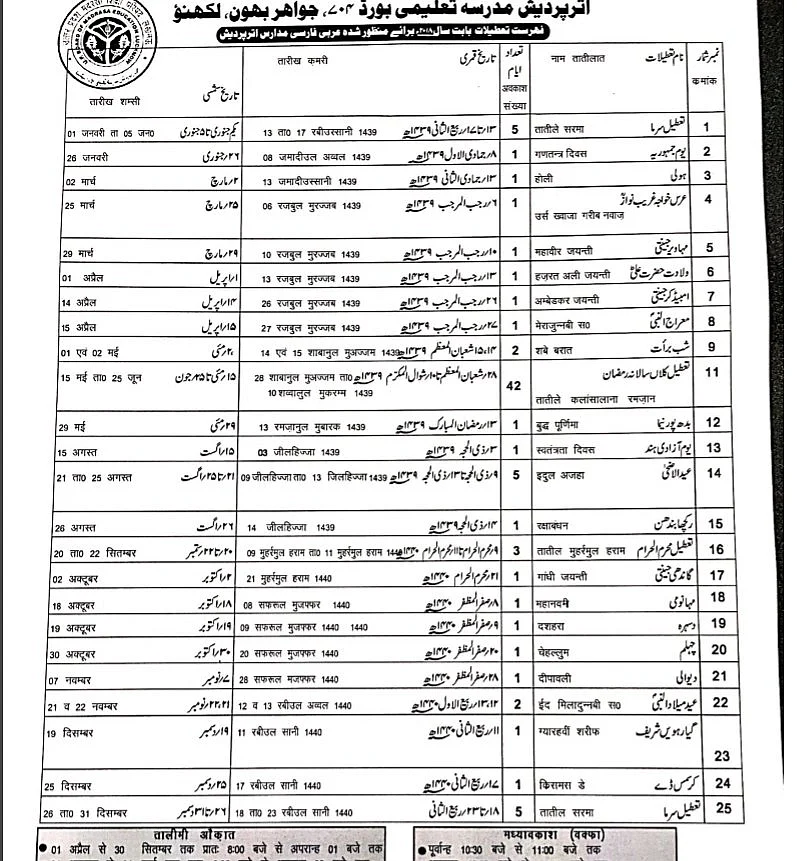 اترپردیش مدرسہ تعلیمی بورڈ ۷۰۴، جواہر بھون، لکھنؤ
فہرست تعطیلات بابت سال ۲۰۱۸ء برائے منظور شدہ عربی فارسی مدارس اترپردیش
نمبر شمار कमांक نام تعطیلات नाम तातीलात تعداد ایام अवकाश संख्या تاریخ قمری तारीख कमरी تاریخ شمسی तारीख शम्सी
1 تعطیل سرما तातीले सरमा 5 ۱۳ تا ۱۷ ربیع الثانی ۱۴۳۹ھ 13 ता0 17 रबीउस्सानी 1439 یکم جنوری تا ۵ جنوری 01 जनवरी ता 05 जन0
2 یوم جمہوریہ गणतन्त्र दिवस 1 ۸ جمادی الاول ۱۴۳۹ھ 08 जमादीउल अव्वल 1439 ۲۶ جنوری 26 जनवरी
3 ہولی होली 1 ۱۳ جمادی الثانی ۱۴۳۹ھ 13 जमादीउस्सानी 1439 ۲ مارچ 02 मार्च
4 عرس خواجہ غریب نوازؒ उर्स ख्वाजा गरीब नवाज़ 1 ۶ رجب المرجب ۱۴۳۹ھ 06 रजबुल मुरज्जब 1439 ۲۵ مارچ 25 मार्च
5 مہاویر جینتی महावीर जयन्ती 1 ۱۰ رجب المرجب ۱۴۳۹ھ 10 रजबुल मुरज्जब 1439 ۲۹ مارچ 29 मार्च
6 ولادت حضرت علیؓ हजरत अली जयन्ती 1 ۱۳ رجب المرجب ۱۴۳۹ھ 13 रजबुल मुरज्जब 1439 ۱ اپریل 01 अप्रैल
7 امبیڈکر جینتی अम्बेडकर जयन्ती 1 ۲۶ رجب المرجب ۱۴۳۹ھ 26 रजबुल मुरज्जब 1439 ۱۴ اپریل 14 अप्रैल
8 معراج النبیؐ मेराजुन्नबी स0 1 ۲۷ رجب المرجب ۱۴۳۹ھ 27 रजबुल मुरज्जब 1439 ۱۵ اپریل 15 अप्रैल
9 شب برأت शबे बरात 2 ۱۴،۱۵ شعبان المعظم ۱۴۳۹ھ 14 एवं 15 शाबानुल मुअज्जम 1439 ۲ مئی 01 एवं 02 मई
11 تعطیل کلاں سالانہ رمضان तातीले कलांसालाना रमज़ान 42 ۲۸ شعبان المعظم تا ۱۰ شوال المکرم ۱۴۳۹ھ 28 शाबानुल मुअज्जम ता0 10 शव्वालुल मुकरम्म 1439 ۱۵ مئی تا ۲۵ جون 15 मई ता0 25 जून
12 بدھ پورنیما बुद्ध पूर्णिमा 1 ۱۳ رمضان المبارک ۱۴۳۹ھ 13 रमज़ानुल मुबारक 1439 ۲۹ مئی 29 मई
13 یوم آزادی ہند स्वतंत्रता दिवस 1 ۳ ذی الحجہ ۱۴۳۹ھ 03 जीलहिज्जा 1439 ۱۵ اگست 15 अगस्त
14 عیدالاضحیٰ इदुल अजहा 5 ۹ ذی الحجہ تا ۱۳ ذی الحجہ ۱۴۳۹ھ 09 जीलहिज्जा ता0 13 जिलहिज्जा 1439 ۲۱ تا ۲۵ اگست 21 ता0 25 अगस्त
15 رکچھا بندھن रक्षाबंधन 1 ۱۴ ذی الحجہ ۱۴۳۹ھ 14 जीलहिज्जा 1439 ۲۶ اگست 26 अगस्त
16 تعطیل محرم الحرام तातील मुहर्रमुल हराम 3 ۹ محرم الحرام تا ۱۱ محرم الحرام ۱۴۴۰ھ 09 मुहर्रमुल हराम ता0 11 मुहर्रमुल हराम 1440 ۲۰ تا ۲۲ ستمبر 20 ता0 22 सितम्बर
17 گاندھی جینتی गांधी जयन्ती 1 ۲۱ محرم الحرام ۱۴۴۰ھ 21 मुहर्रमुल हराम 1440 ۲ اکتوبر 02 अक्टूबर
18 مہانومی महानवमी 1 ۸ صفر المظفر ۱۴۴۰ھ 08 सफरूल मुजफ्फर 1440 ۱۸ اکتوبر 18 अक्टूबर
19 دسہرہ दशहरा 1 ۹ صفر المظفر ۱۴۴۰ھ 09 सफरूल मुजफ्फर 1440 1440 ۱۹ اکتوبر 19 अक्टूबर
20 چہلم चेहल्लुम 1 ۲۰ صفر المظفر ۱۴۴۰ھ 20 सफरूल मुजफ्फर 1440 ۳۰ اکتوبر 30 अक्टूबर
21 دیوالی दीपावली 1 ۲۸ صفر المظفر ۱۴۴۰ھ 28 सफरूल मजफ्फर 1440 ۷ نومبر 07 नवम्बर
22 عید میلاد النبیؐ ईद मिलादुन्नबी स0 2 ۱۲،۱۳ ربیع الاول ۱۴۴۰ھ 12 व 13 रबीउल अव्वल 1440 ۲۱،۲۲ نومبر 21 व 22 नवम्बर
23 گیارہویں شریف ग्यारहवीं शरीफ 1 ۱۱ ربیع الثانی ۱۴۴۰ھ 11 रबीउल सानी 1440 ۱۹ دسمبر 19 दिसम्बर
24 کرسمس ڈے किसमस डे 1 ۱۷ ربیع الثانی ۱۴۴۰ھ 17 रबीउल सानी 1440 ۲۵ دسمبر 25 दिसम्बर
25 تعطیل سرما तातील सरमा 5 ۱۸ تا ۲۳ ربیع الثانی 18 ता0 23 रबीउल सानी 1440 ۲۶ تا ۳۱ دسمبر 26 ता0 31 दिसम्बर
तालीमी औक़ात
01 अप्रैल से 30 सितम्बर तक प्रातः 8:00 बजे से अपरान्ह 01 बजे तक
मध्यावकाश (वक्फा)
पूर्वान्ह 10:30 बजे से 11:00 बजे तक